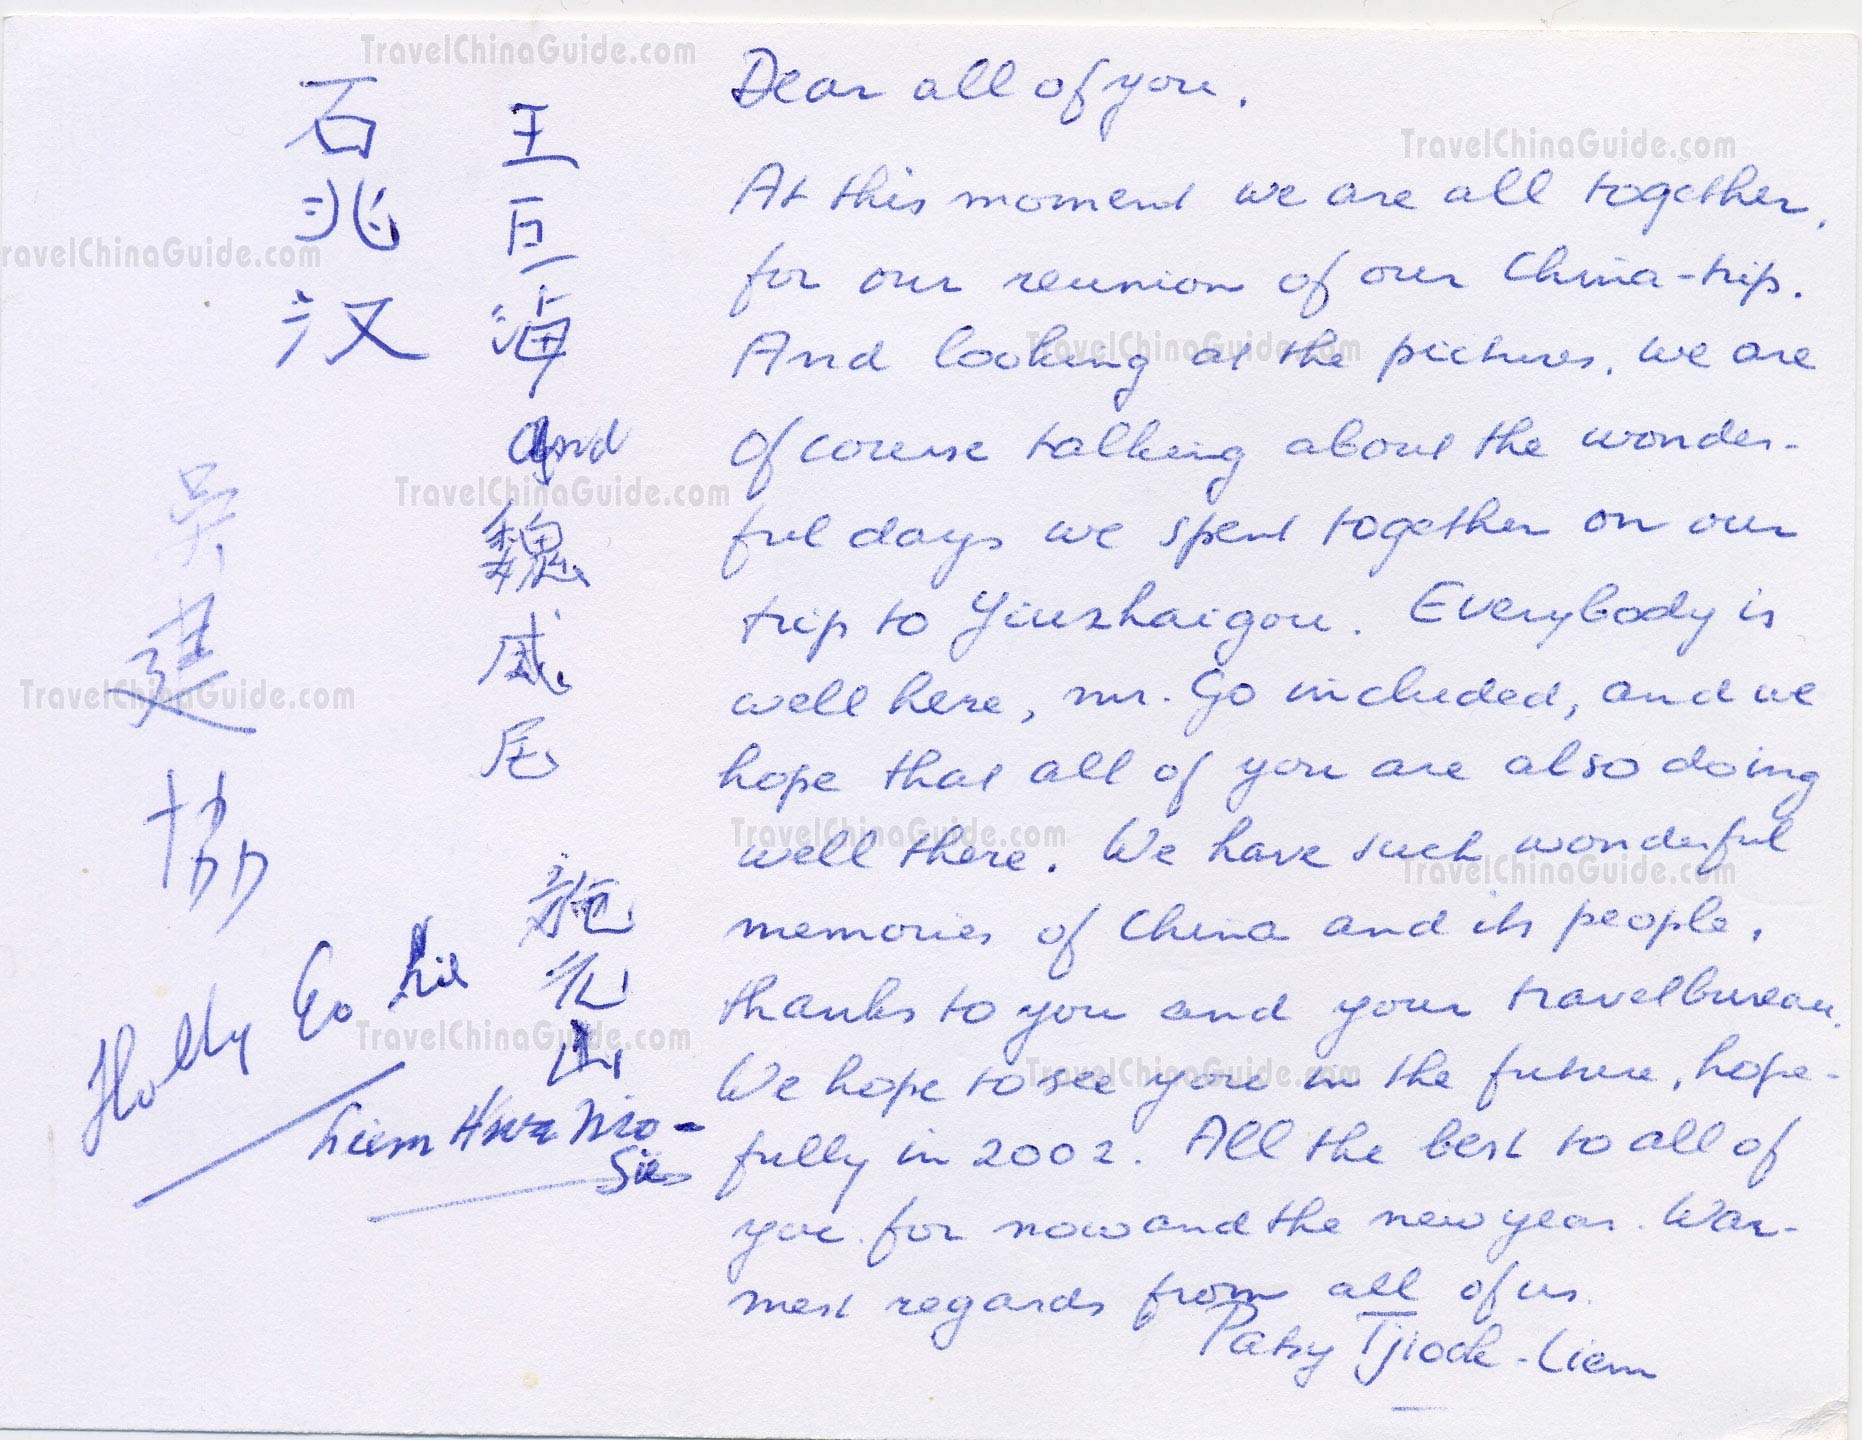 Dear all of you,
At this moment we are all together,
for our reunion of our China-trip.
And looking at the pictures, we are
of course talking about the wonder-
ful days we spent together on our
trip to Yiuzhaigou. Everybody is
well here, mr. Go included, and we
hope that all of you are also doing
well there. We have such wonderful
memories of China and its people,
thanks to you and your travelbureau.
We hope to see you in the future, hope-
fully in 2002. All the best to all of
you for now and the new year. War-
mest regards from all of us.
Patsy Tjiook-Liem
王巨海
and
魏威尼
石兆汉
吴建协
Holly Go
Liem Hwa Nio-
TravelChinaGuide.com
TravelChinaGuide.com
TravelChinaGuide.com
TravelChinaGuide.com
TravelChinaGuide.com
TravelChinaGuide.com
TravelChinaGuide.com
TravelChinaGuide.com
TravelChinaGuide.com
TravelChinaGuide.com